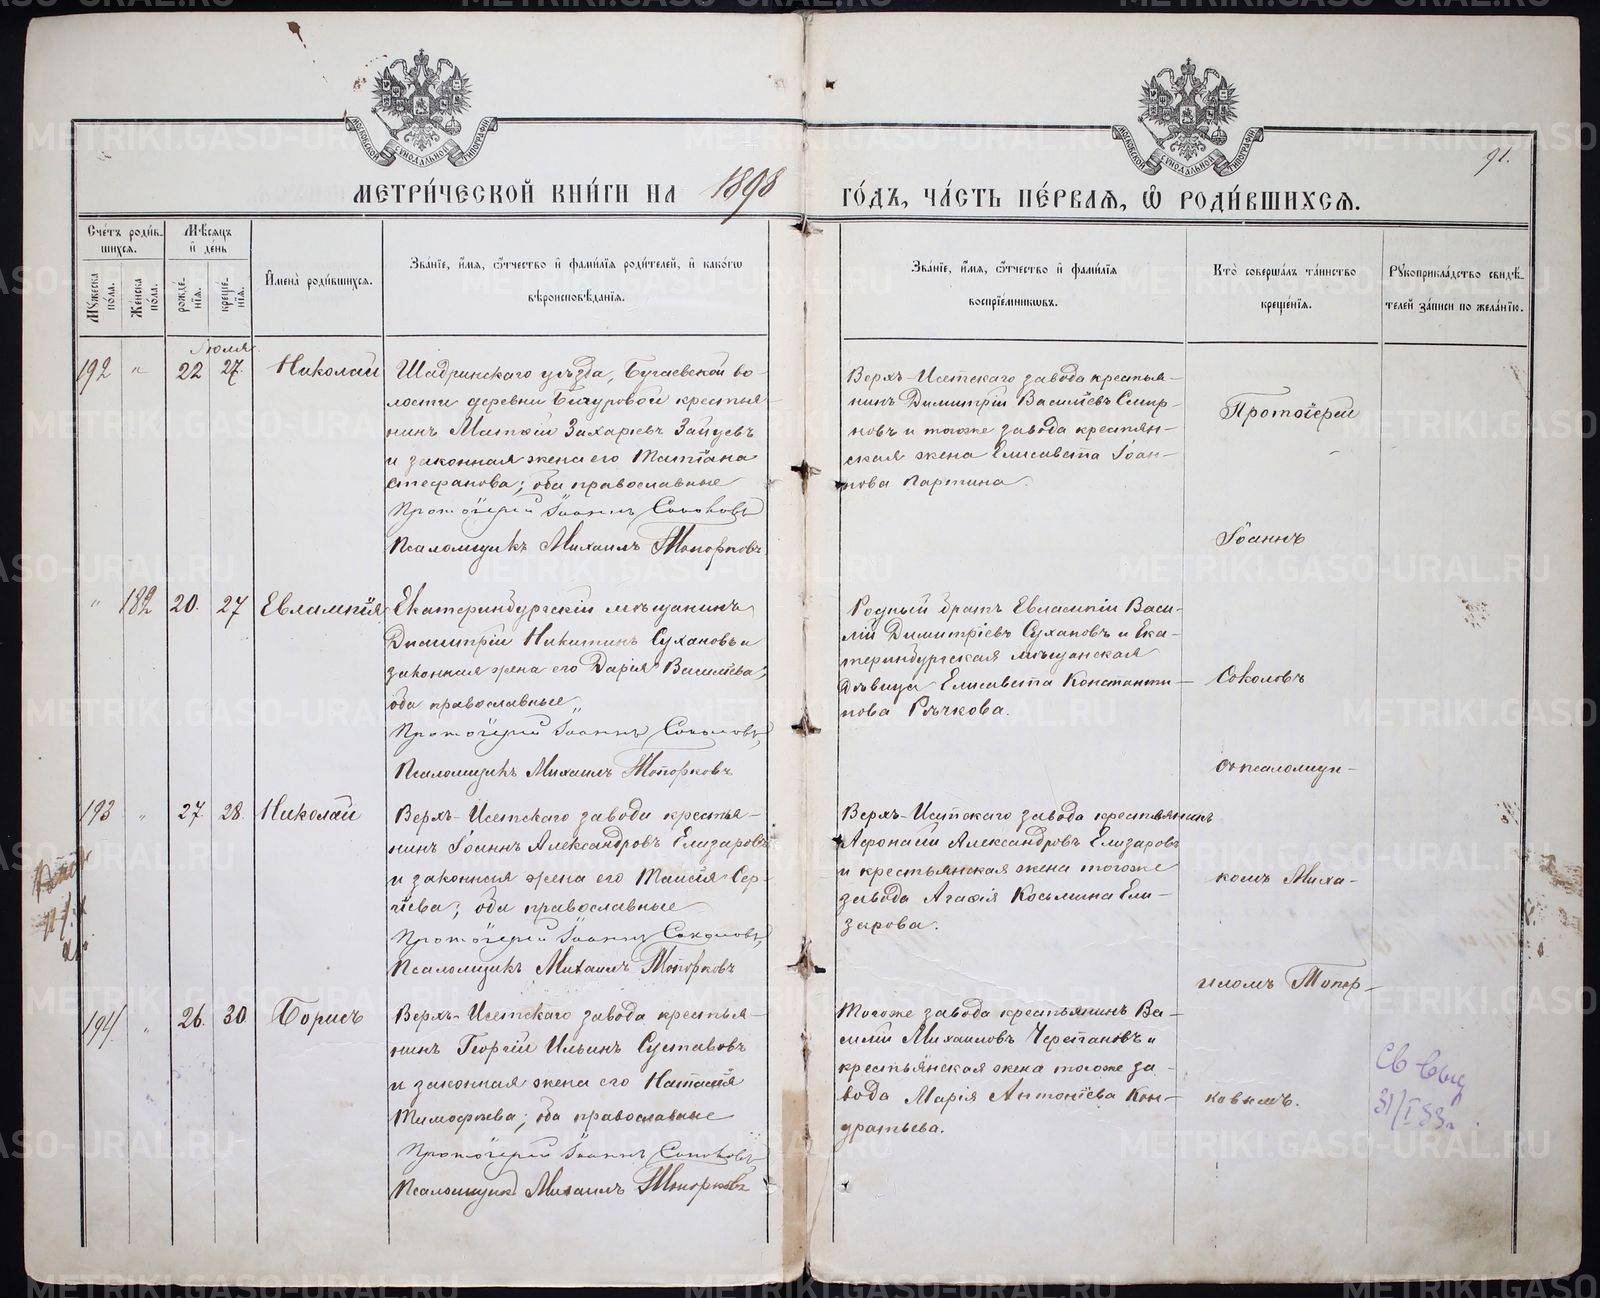 МОСКОВСКОЙ СѴНОДАЛЬНОЙ ТИПОГРАФІИ
МОСКОВСКОЙ СѴНОДАЛЬНОЙ ТИПОГРАФІИ
91.
МЕТРИ́ЧЕСКОЙ КНИ́ГИ НА 1898 ГО́ДЪ, ЧА́СТЬ ПЕ́РВАѦ, Ѡ҆ РОДИ́ВШИХСѦ.
Сче́тъ роди́в-
шихсѧ.
Мꙋ́жеска по́ла.
Же́нска по́ла.
Мѣ́сѧцъ
и҆ де́нь
рожде́-
нїѧ.
креще́-
нїѧ.
И҆мена̀ роди́вшихсѧ.
Зва́нїе, и҆́мѧ, ѻ҆́тчество и҆ фами́лїѧ роди́телей, и҆ како́гѡ
вѣроисповѣ́данїѧ.
Зва́нїе, и҆́мѧ, ѻ҆́тчество и҆ фами́лїѧ
воспрїе́мникѡвъ.
Кто̀ соверша́лъ та́инство
креще́нїѧ.
Рꙋкоприкла́дство свидѣ́-
телей за́писи по жела́нїю.
Іюля
192 " 22 27. Николай
Шадринскаго уѣзда, Бугаевской во-
лости деревни Бичуровой крестья-
нинъ Матѳій Захаріевъ Зайцевъ
и законная жена его Татіана
Стефанова; оба православные
Протоіерей Іоаннъ Соколовъ
Псаломщикъ Михаилъ Топорковъ
Верхъ-Исетскаго завода крестья-
нинъ Димитрій Василіевъ Смир-
новъ и тогоже завода крестьян-
ская жена Елисавета Іоан-
нова Ларгина.
Протоіерей
Іоаннъ
" 182 20. 27 Евлампія
Екатеринбургскій мѣщанинъ
Димитрій Никитинъ Сухановъ и
законная жена его Дарія Василіева;
оба православные
Протоіерей Іоаннъ Соколовъ
Псаломщикъ Михаилъ Топорковъ
Родный братъ Евлампіи Васи-
лій Димитріевъ Сухановъ и Ека-
теринбургская мѣщанская
дѣвица Елисавета Константи-
нова Рѣчкова.
Соколовъ
съ псаломщи-
193 " 27 28. Николай
Верхъ-Исетскаго завода крестья-
нинъ Іоаннъ Александровъ Елизаровъ
и законная жена его Таисія Сер-
гіева; оба православные
Протоіерей Іоаннъ Соколовъ
Псаломщикъ Михаилъ Топорковъ
Верхъ-Исетскаго завода крестьянинъ
Афонасій Александровъ Елизаровъ
и крестьянская жена тогоже
завода Агафія Косьмина Ели-
зарова.
комъ Миха-
иломъ Топор-
194 " 26. 30 Борисъ
Верхъ-Исетскаго завода крестья-
нинъ Георгій Ильинъ Суставовъ
и законная жена его Наталія
Тимофѣева; оба православные
Протоіерей Іоаннъ Соколовъ
Псаломщикъ Михаилъ Топорковъ
Тогоже завода крестьянинъ Ва-
силій Михаиловъ Черепановъ и
крестьянская жена тогоже за-
вода Марія Антоніева Кон-
дратьева.
ковымъ.
Св-выд
31/I 33г.
METRIKI.GASO-URAL.RU